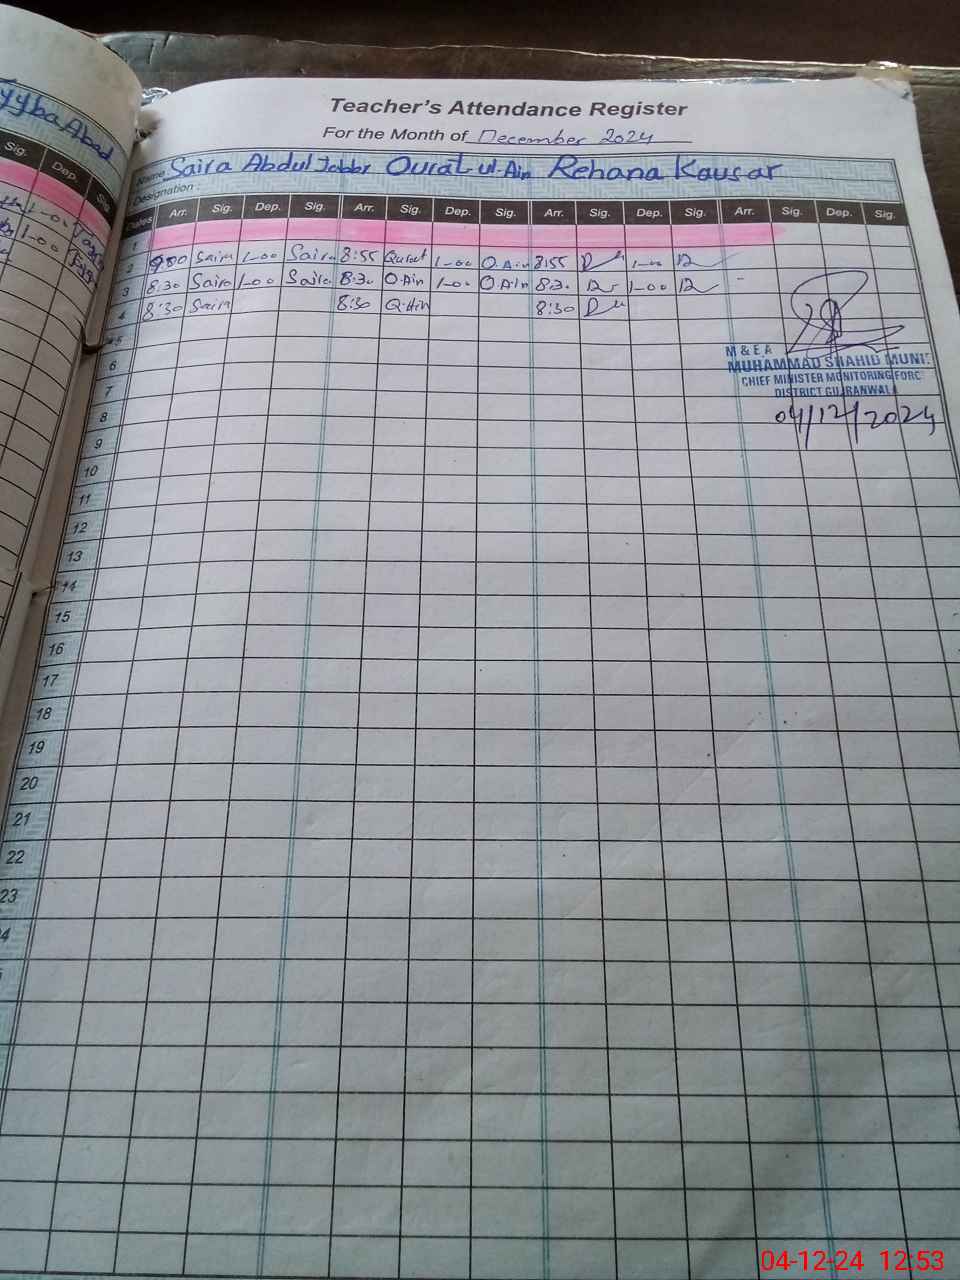 Teacher's Attendance Register
For the Month of December 2024
yyba Abad
Name Saira Abdul Jabbr Qurat-ul-Ain Rehana Kausar
Designation :
Sig. Dep. Sig.
Dates Arr. Sig. Dep. Sig. Arr. Sig. Dep. Sig. Arr. Sig. Dep. Sig. Arr. Sig. Dep. Sig.
1
2 Saira 1-00 Saira 8:55 Qurat 1-00 Q.Ain 8:55 1-00
3 8:30 Saira 1-00 Saira 8:30 Q.Ain 1-00 Q.Ain 8:30 1-00
4 8:30 Saira 8:30 Q.Ain 8:30
5
6
7
8
9
10
11
12
13
14
15
16
17
18
19
20
21
22
23
4
M & E A
MUHAMMAD SHAHID MUNI
CHIEF MINISTER MONITORING FORC
DISTRICT GUJRANWALA
04/12/2024
04-12-24 12:53